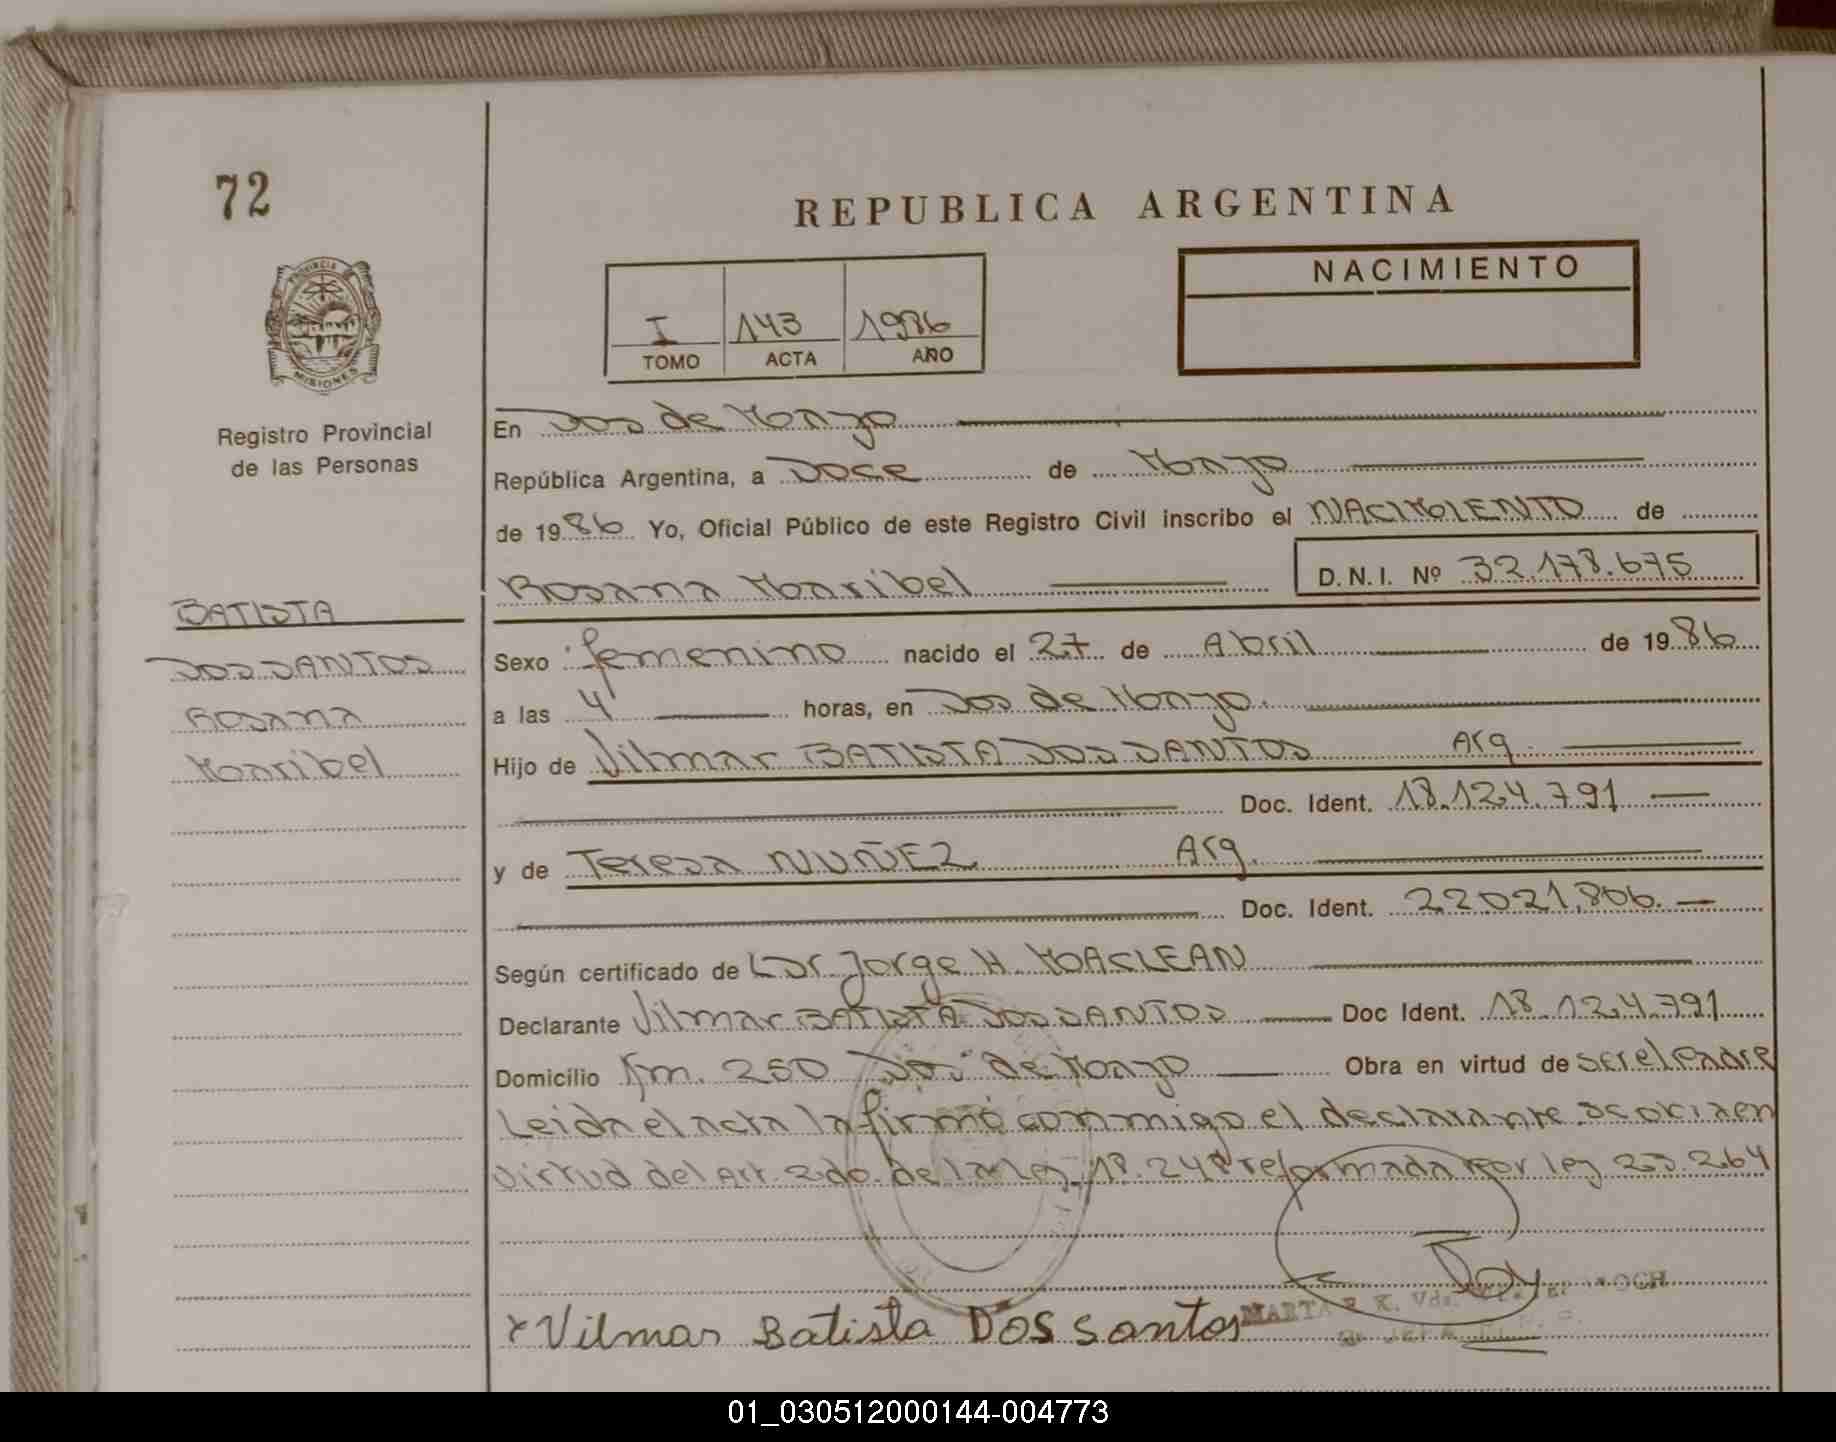 72
REPUBLICA ARGENTINA
NACIMIENTO
PROVINCIA DE
MISIONES
I 143 1986
TOMO ACTA AÑO
Registro Provincial
de las Personas
En Dos de Mayo
República Argentina, a Doce de Mayo
de 1986 Yo, Oficial Público de este Registro Civil inscribo el NACIMIENTO de
Rosana Maribel D.N.I. Nº 32.178.675
BATISTA
DOS SANTOS
Rosana
Maribel
Sexo femenino nacido el 27 de Abril de 1986
a las 4 horas, en Dos de Mayo.
Hijo de Vilmar BATISTA DOS SANTOS Arg.
Doc. Ident. 18.124.791
y de Teresa NUÑEZ Arg.
Doc. Ident. 22.021.806.
Según certificado de Dr. Jorge H. MACLEAN
Declarante Vilmar BATISTA DOS SANTOS Doc Ident. 18.124.791
Domicilio Km. 250 Dos de Mayo Obra en virtud de ser el Padre
Leida el acta la firmó conmigo el declarante. en
virtud del Art. 2do. de la Ley 18.248 reformada por ley 23.264
x Vilmar Batista Dos santos
MARTA K. Vda.
01_030512000144-004773